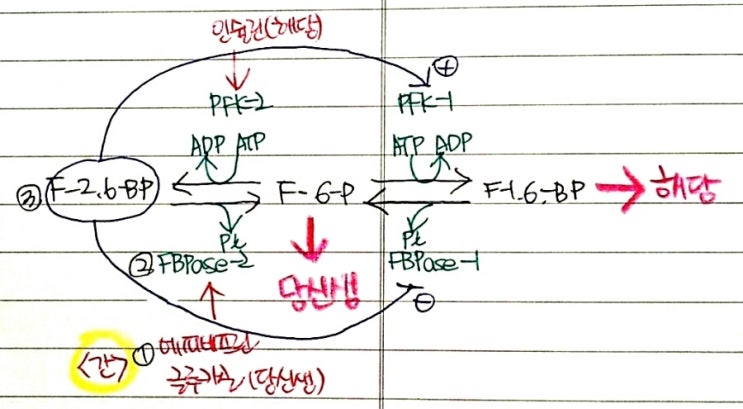 인슐린(해당)
⊕
PFK-2 PFK-1
ADP ATP ATP ADP
③ F-2,6-BP F-6-P F-1,6-BP → 해당
Pi Pi
② FBPase-2 FBPase-1
당신생
⊖
<간> ① 에피네프린
글루카곤(당신생)